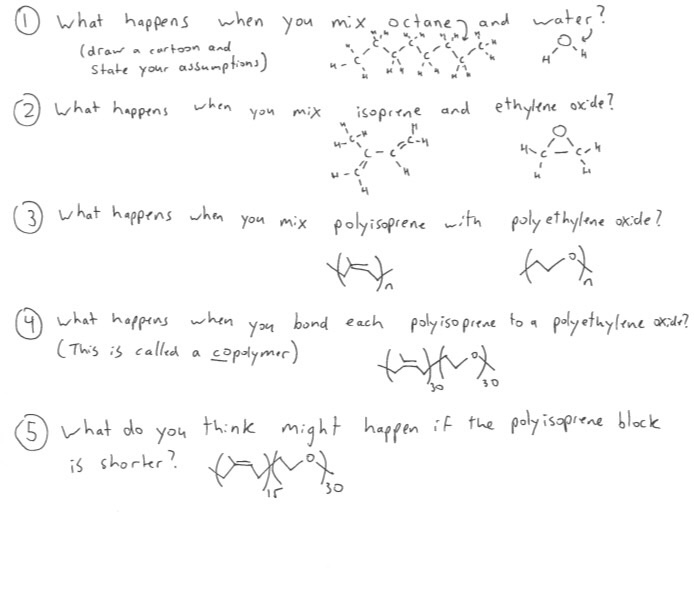 ① What happens when you mix octane and water?
(draw a cartoon and
state your assumptions)
② What happens when you mix isoprene and ethylene oxide?
③ What happens when you mix polyisoprene with polyethylene oxide?
n n
④ What happens when you bond each polyisoprene to a polyethylene oxide?
(This is called a copolymer)
30 30
⑤ What do you think might happen if the polyisoprene block
is shorter?
15 30